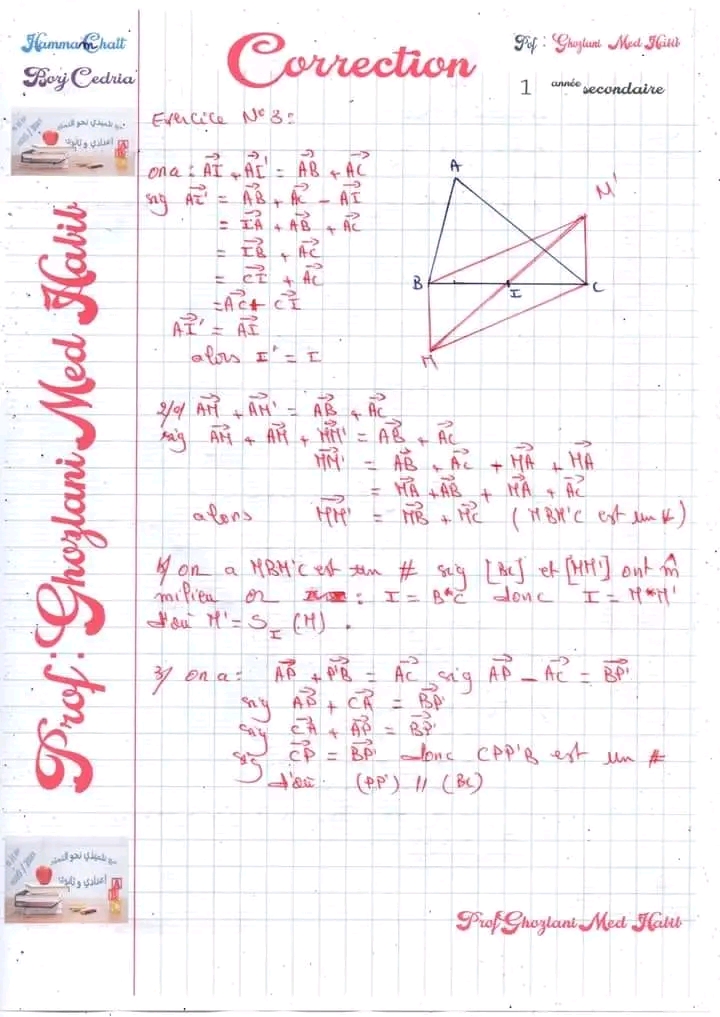 Hammam Chatt
Borj Cedria
Correction
Pof : Ghozlani Med Habib
1 année secondaire
Prof : Ghozlani Med Habib
Exercice N° 3 :
on a : AI + AI' = AB + AC
sig AI' = AB + AC - AI
= IA + AB + AC
= IB + AC
= CI + AC
= AC + CI
AI' = AI
alors I' = I
A
M'
B
I
C
M
2/a) AM + AM' = AB + AC
sig AM + AM + MM' = AB + AC
MM' = AB + AC + MA + MA
= MA + AB + MA + AC
alors MM' = MB + MC ( MBM'C est un #)
b/ on a MBM'C est un # sig [BC] et [MM'] ont m̂
milieu or : I = B*C donc I = M*M'
d'où M' = S_I (M) .
3/ on a : AP + P'B = AC sig AP - AC = BP'
sig AP + CA = BP'
sig CA + AP = BP'
sig CP = BP' donc CPP'B est un #
d'où (PP') // (BC)
Prof Ghozlani Med Habib